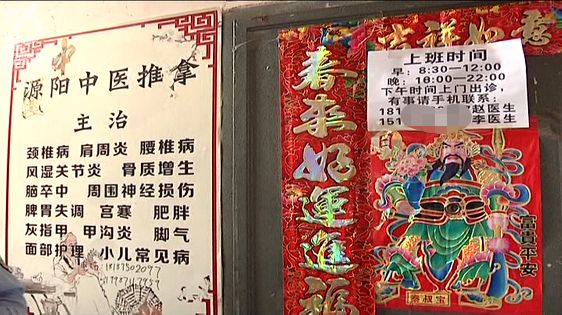 中
源阳中医推拿
主治
颈椎病 肩周炎 腰椎病
风湿关节炎 骨质增生
脑卒中 周围神经损伤
脾胃失调 宫寒 肥胖
灰指甲 甲沟炎 脚气
面部护理 小儿常见病
18187502097
吉祥如意
春来好運進福
上班时间
早：8:30—12:00
晚：18:00—22:00
下午时间上门出诊，
有事请手机联系：
181 赵医生
151 李医生
富貴平安
秦叔宝